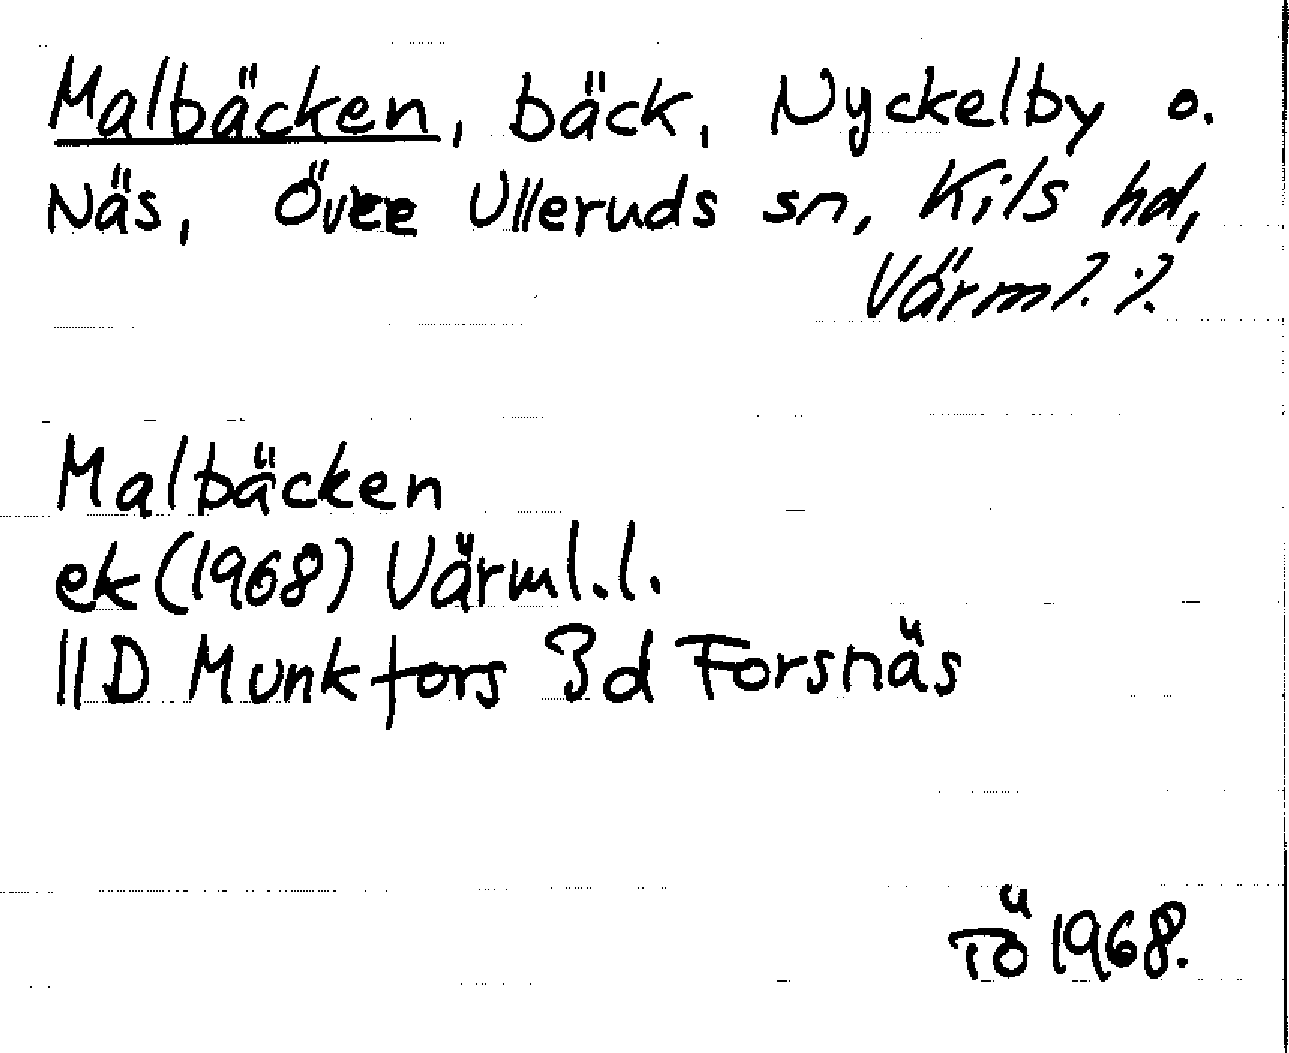 Malbäcken, bäck, Nyckelby o.
Näs, Övre Ulleruds sn, Kils hd,
Värml. l.
Malbäcken
ek (1968) Värml. l.
11D Munkfors 3d Forsnäs
TÖ 1968.